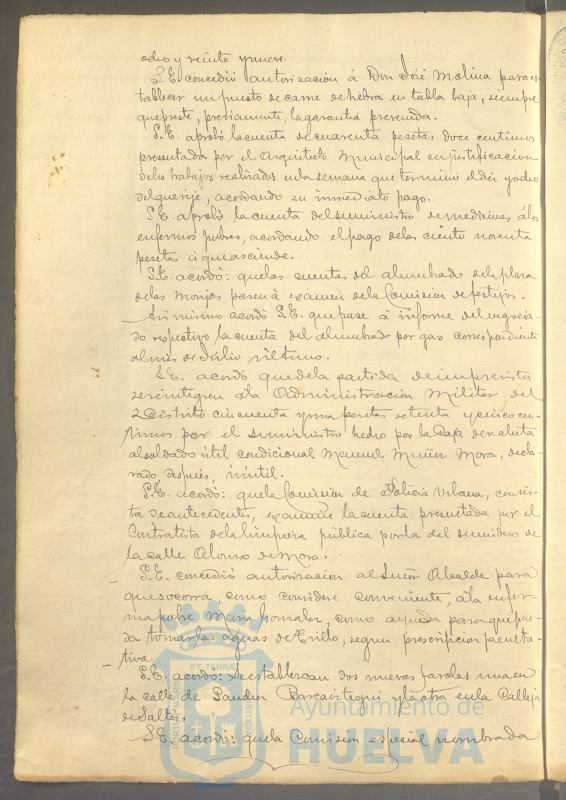 ocho y veinte y nueve.
S.E. concedió autorización á Don José Molina para es-
tablecer un puesto de carne de hebra en tabla baja, siempre
que preste, previamente, la garantía prevenida.
S.E. aprobó la cuenta de cuarenta pesetas doce centimos
presentada por el Arquitecto Municipal en justificacion
de los trabajos realizados en la semana que terminó el dia y ocho
del que rije, acordando su inmediato pago.
S.E. aprobó la cuenta del suministro de medicinas á los
enfermos pobres, acordando el pago de las ciento noventa
pesetas á que asciende.
S.E. acordó: que las cuentas del alumbrado de la plaza
de las Monjas pasen á exámen de la Comision de festejos.
Asi mismo acordó S.E. que pase á informe del negocia-
do respectivo la cuenta del alumbrado por gas correspondiente
al mes de Julio ultimo.
S.E. acordó que de la partida de imprevistos
se reintegren á la Administracion Militar del
2º Distrito cincuenta y una pesetas setenta y cinco cen-
timos por el suministro hecho por la Caja de recluta
al soldado útil condicional Manuel Muñoz Mora, decla-
rado despues, inútil.
S.E. acordó: que la Comision de Policía Urbana, con vis-
ta de antecedentes, examine la cuenta presentada por el
Contratista de la limpieza pública por la del sumidero de
la calle Alonso de Mora.
S.E. concedió autorizacion al Señor Alcalde para
que socorra, como considere conveniente, á la enfer-
ma pobre Maria Gonzalez, como ayuda para que pue-
da tomar las aguas de Trillo, segun prescripcion faculta-
tiva.
S.E. acordó: se establezcan dos nuevas farolas una en
la calle de Sanchez Barcaiztegui y la otra en la Calleja
de Saltés.
S.E. acordó: que la Comision especial nombrada
Ayuntamiento de
HUELVA